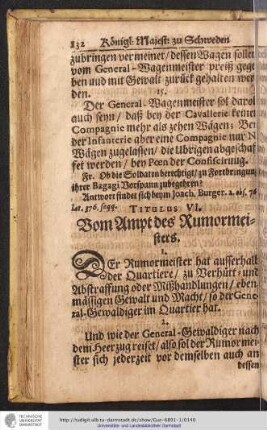 132 Königl: Majest: zu Schweden
zubringen vermeinet / dessen Wagen soller
vom General-Wagenmeister preiß gege
ben und mit Gewalt zurück gehalten wer
den.
15.
Der General-Wagenmeister sol darof
auch seyn / daß bey der Cavallerie keiner
Compagnie mehr als zehen Wägen / Bey
der Infanterie aber eine Compagnie nur
Wägen zugelassen / die Ubrigen abgeschaf
fet werden / bey Poen der Confiscirung.
Fr. Ob die Soldaten berechtigt / zu Fortbringung
ihrer Bagagi Vorspann zubegehren?
Antwort findet sich beym Joach. Burger. 2.
lat. 376. seqq.
TITULUS VI.
Vom Ampt des Rumormei-
sters.
1.
DEr Rumormeister hat ausserhalb
der Quartiere / zu Verhütt- und
Abstraffung oder Mißhandlungen / eben
mässigen Gewalt und Macht / so der Gene-
ral-Gewaldiger im Quartier hat.
2.
Und wie der General-Gewaldiger nach
dem Heerzug reiset / also sol der Rumormei-
ster sich jederzeit vor demselben auch an
dessen
http://tudigit.ulb.tu-darmstadt.de/show/Gue-4891-1/0146
Universitäts- und Landesbibliothek Darmstadt